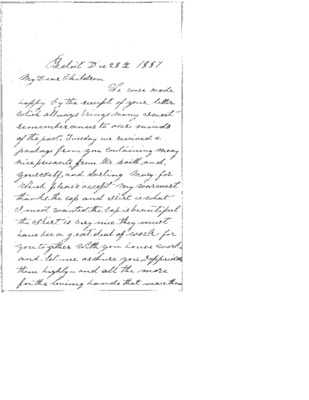 Beloit Dec 28th 1887
My Dear Children
We were made
happy by the receipt of your letter
which allways brings many
rememberances to our minds
of the past. Tuesday we received a
package from you containing many
nice presents from Mr. and
yourself, and darling Mary, for
which please accept my warmest
thanks, the cap and skirt is what
I most wanted, the cap is beautiful
the skirt is very nice, they must
have been a great deal of work for
you together with you house work
and let me assure you I appreciate
them highly - and all the more
for the loving hands that made them